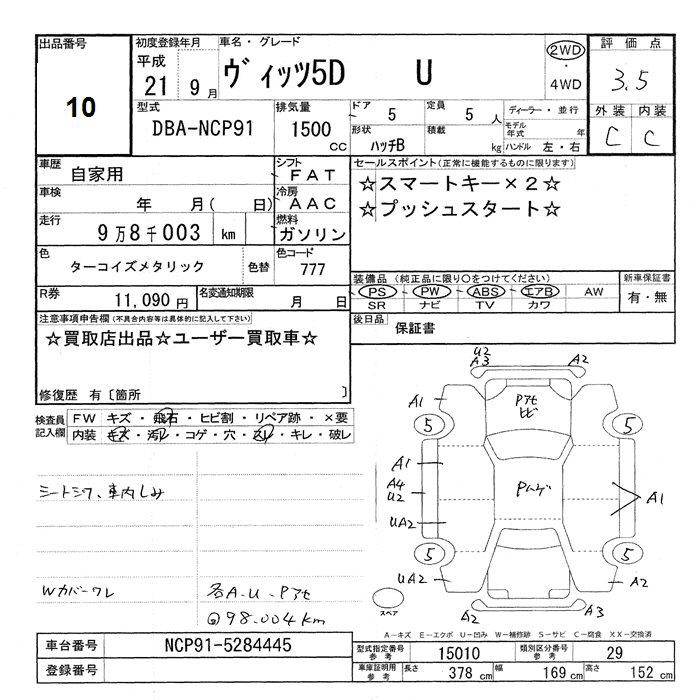 出品番号
10
初度登録年月
平成
21 9月
車名・グレード
ヴィッツ5D U
2WD
・
4WD
評価点
3.5
外装 内装
C C
型式
DBA-NCP91
排気量
1500
cc
ドア
5
定員
5人
形状
ハッチB
積載
kg
ディーラー・並行
モデル年式 年
ハンドル 左・右
車歴
自家用
シフト
FAT
車検
年 月( 日)
冷房
AAC
走行
9万8千003 km
燃料
ガソリン
色
ターコイズメタリック
色替
色コード
777
R券
11,090円
名変通知期限
月 日
セールスポイント(正常に機能するものに限ります)
☆スマートキー×2☆
☆プッシュスタート☆
装備品(純正品に限り○をつけてください)
PS PW ABS エアB AW
SR ナビ TV カワ
新車保証書
有・無
後日品
保証書
注意事項申告欄(不具合内容等は具体的に記入して下さい)
☆買取店出品☆ユーザー買取車☆
修復歴 有〔箇所 〕
検査員
記入欄
FW キズ・飛石・ヒビ割・リペア跡・×要
内装 キズ・汚レ・コゲ・穴・スレ・キレ・破レ
シートシワ、車内しみ
Wカバーワレ
各A.U.Pアセ
@98.004km
U2
A3
A2
A1
Pアセ
ヒビ
5
5
A1
A4
U2
Pハゲ
A1
UA2
5
5
UA2
A2
スペア
A2
A3
A-キズ E-エクボ U-凹み W-補修跡 S-サビ C-腐食 XX-交換済
車台番号
NCP91-5284445
登録番号
型式指定番号
参考
15010
類別区分番号
参考
29
車庫証明用
参考
長さ
378 cm
幅
169 cm
高さ
152 cm